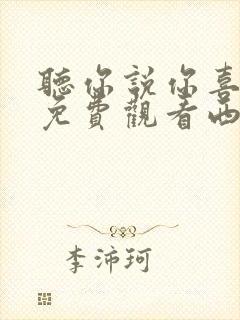 聽你說你喜
免費觀看西
李沛珂